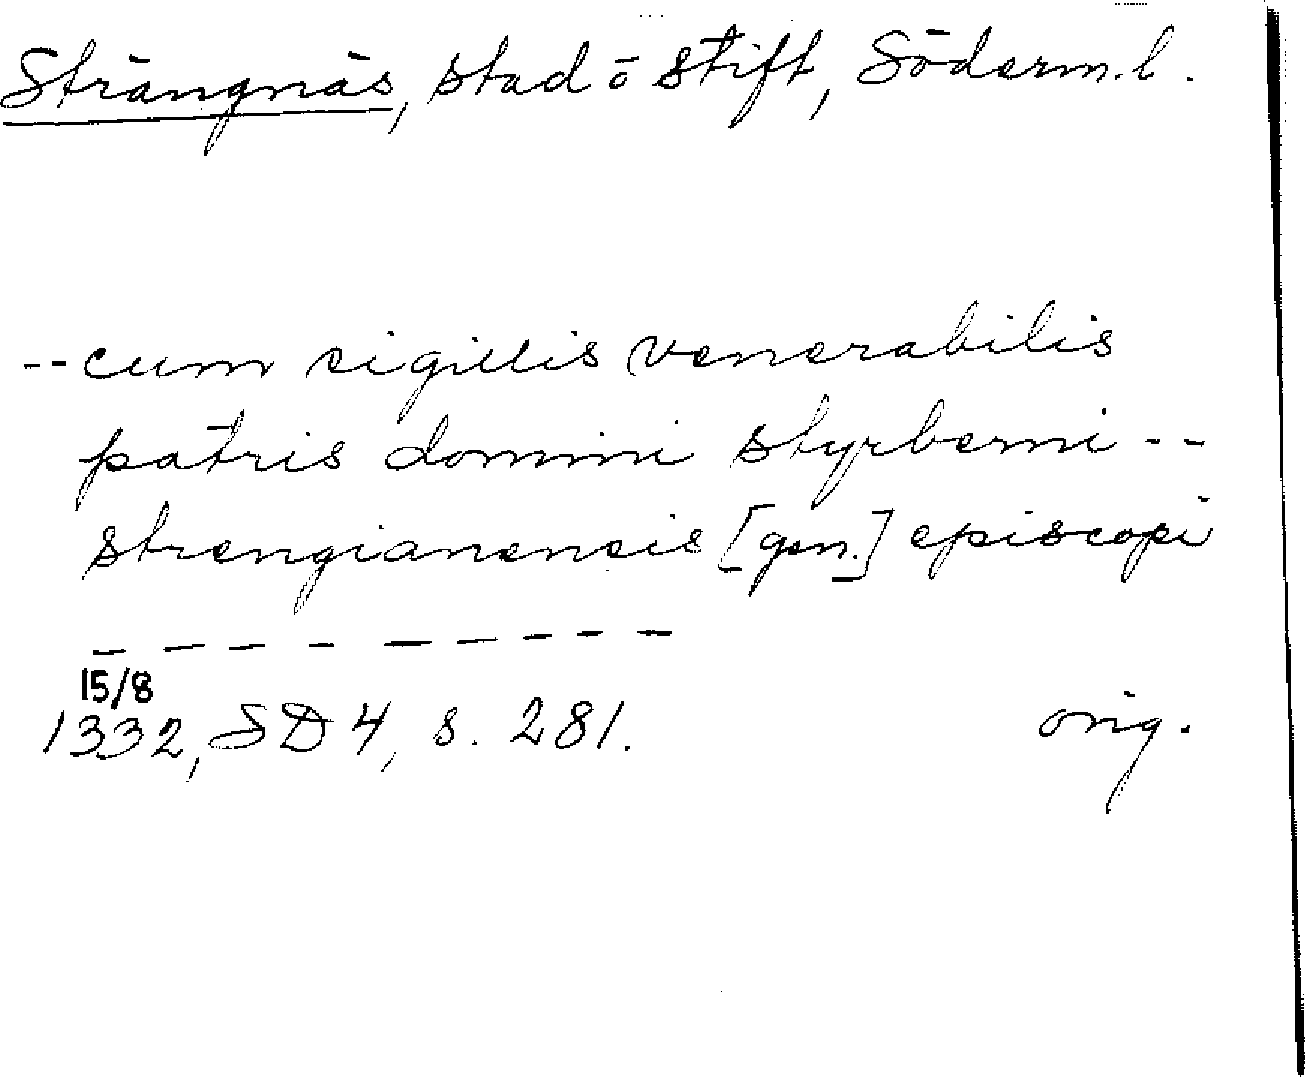 Strängnäs, stad o stift, Söderm.l.
-- cum sigillis venerabilis
patris domini styrberni --
strengianensis [gen.] episcopi
— — — — — — — — —
15/8
1332, SD 4, s. 281. orig.